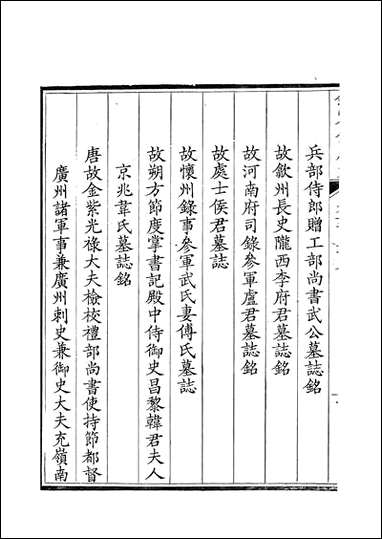 兵部侍郎贈工部尚書武公墓誌銘
故歙州長史隴西李府君墓誌銘
故河南府司錄參軍盧君墓誌銘
故處士侯君墓誌
故懷州錄事參軍武氏妻傅氏墓誌
故朔方節度掌書記殿中侍御史昌黎韓君夫人
京兆韋氏墓誌銘
唐故金紫光祿大夫檢校禮部尚書使持節都督
廣州諸軍事兼廣州刺史兼御史大夫充嶺南